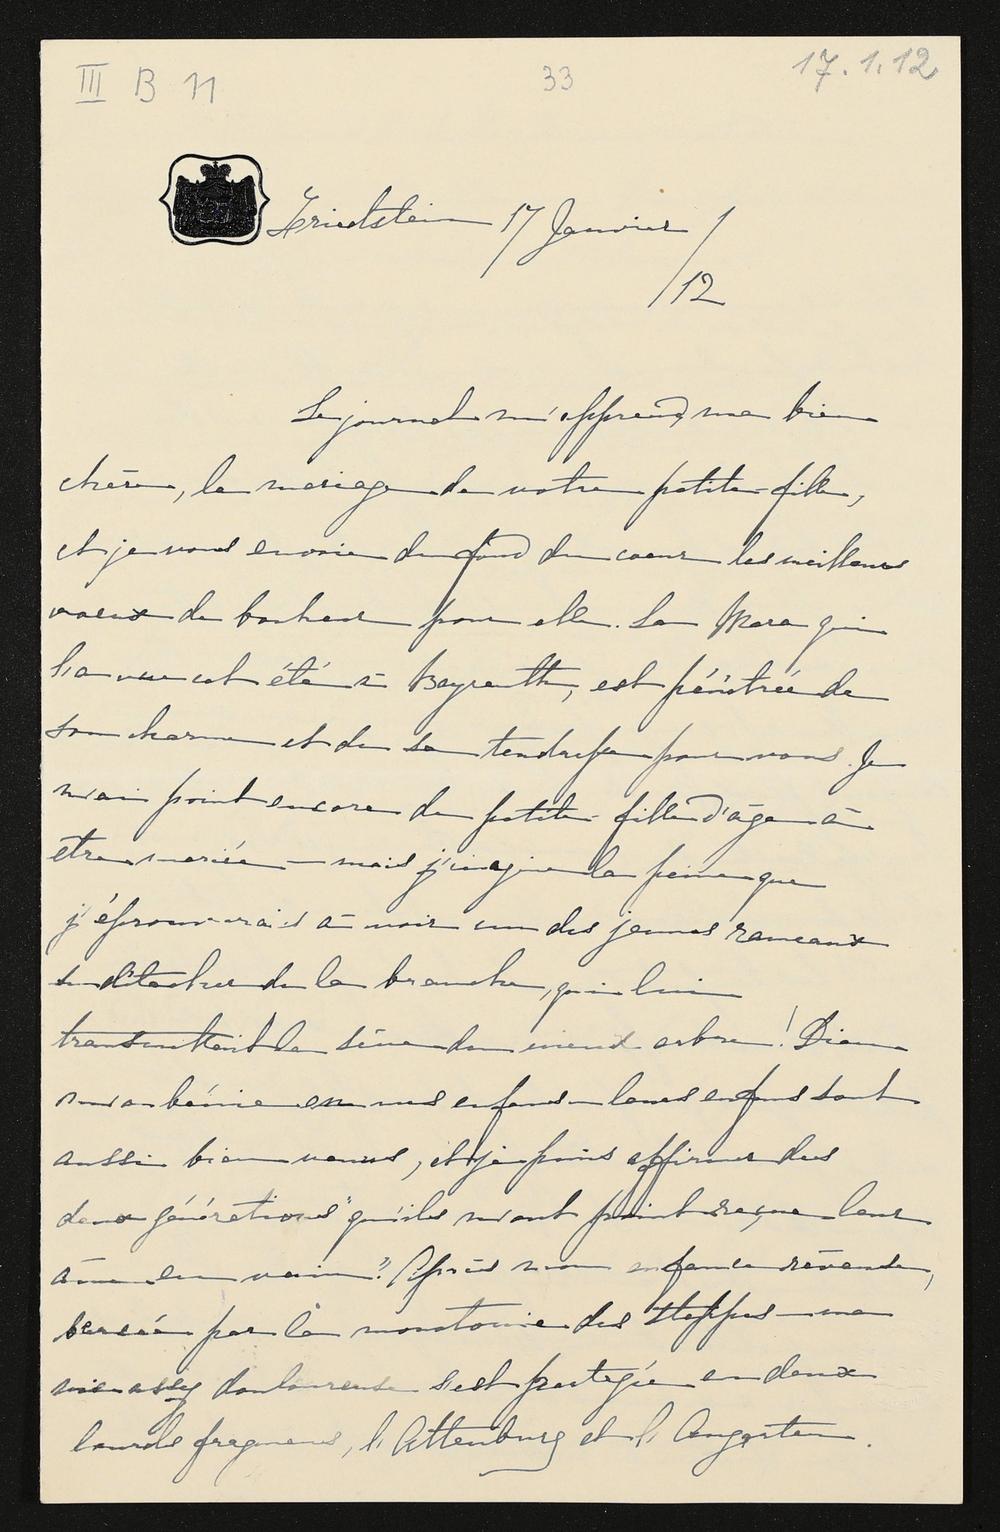 III B 11
33
17.1.12
Friedstein 17 Janvier
/12
Le journal m'apprend, ma bien
chère, le mariage de votre petite-fille,
et je vous envoie du fond du coeur les meilleurs
voeux de bonheur pour elle. La Mara qui
l'a vue cet été à Bayreuth, est pénétrée de
son charme et de sa tendresse pour vous. Je
n'ai point encore de petite-fille d'âge à
être mariée — mais j'imagine la peine que
j'éprouverais à voir un des jeunes rameaux
se détacher de la branche, qui lui
transmettait la sève du vieux arbre! Dieu
m'a bénie en mes enfans – leurs enfans sont
aussi bien venus, et je puis affirmer des
deux générations "qu'ils n'ont point reçu leur
âme en vain". Après mon enfance rêveuse,
bercée par la monotonie des steppes – ma
vie assez douloureuse s'est partagée en deux
lourds fragmens, l'Altenburg et l'Augarten.